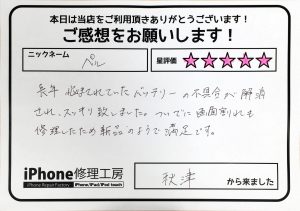 本日は当店をご利用頂きありがとうございます！
ご感想をお願いします！
ニックネーム
ペル
星評価
★★★★★
長年 悩まされていたバッテリーの不具合が解消
され、スッキリ致しました。ついでに画面割れも
修理したため新品のようで満足です。
iPhone修理工房
iPhone Repair Factory
iPhone/iPad/iPod touch
秋津
から来ました